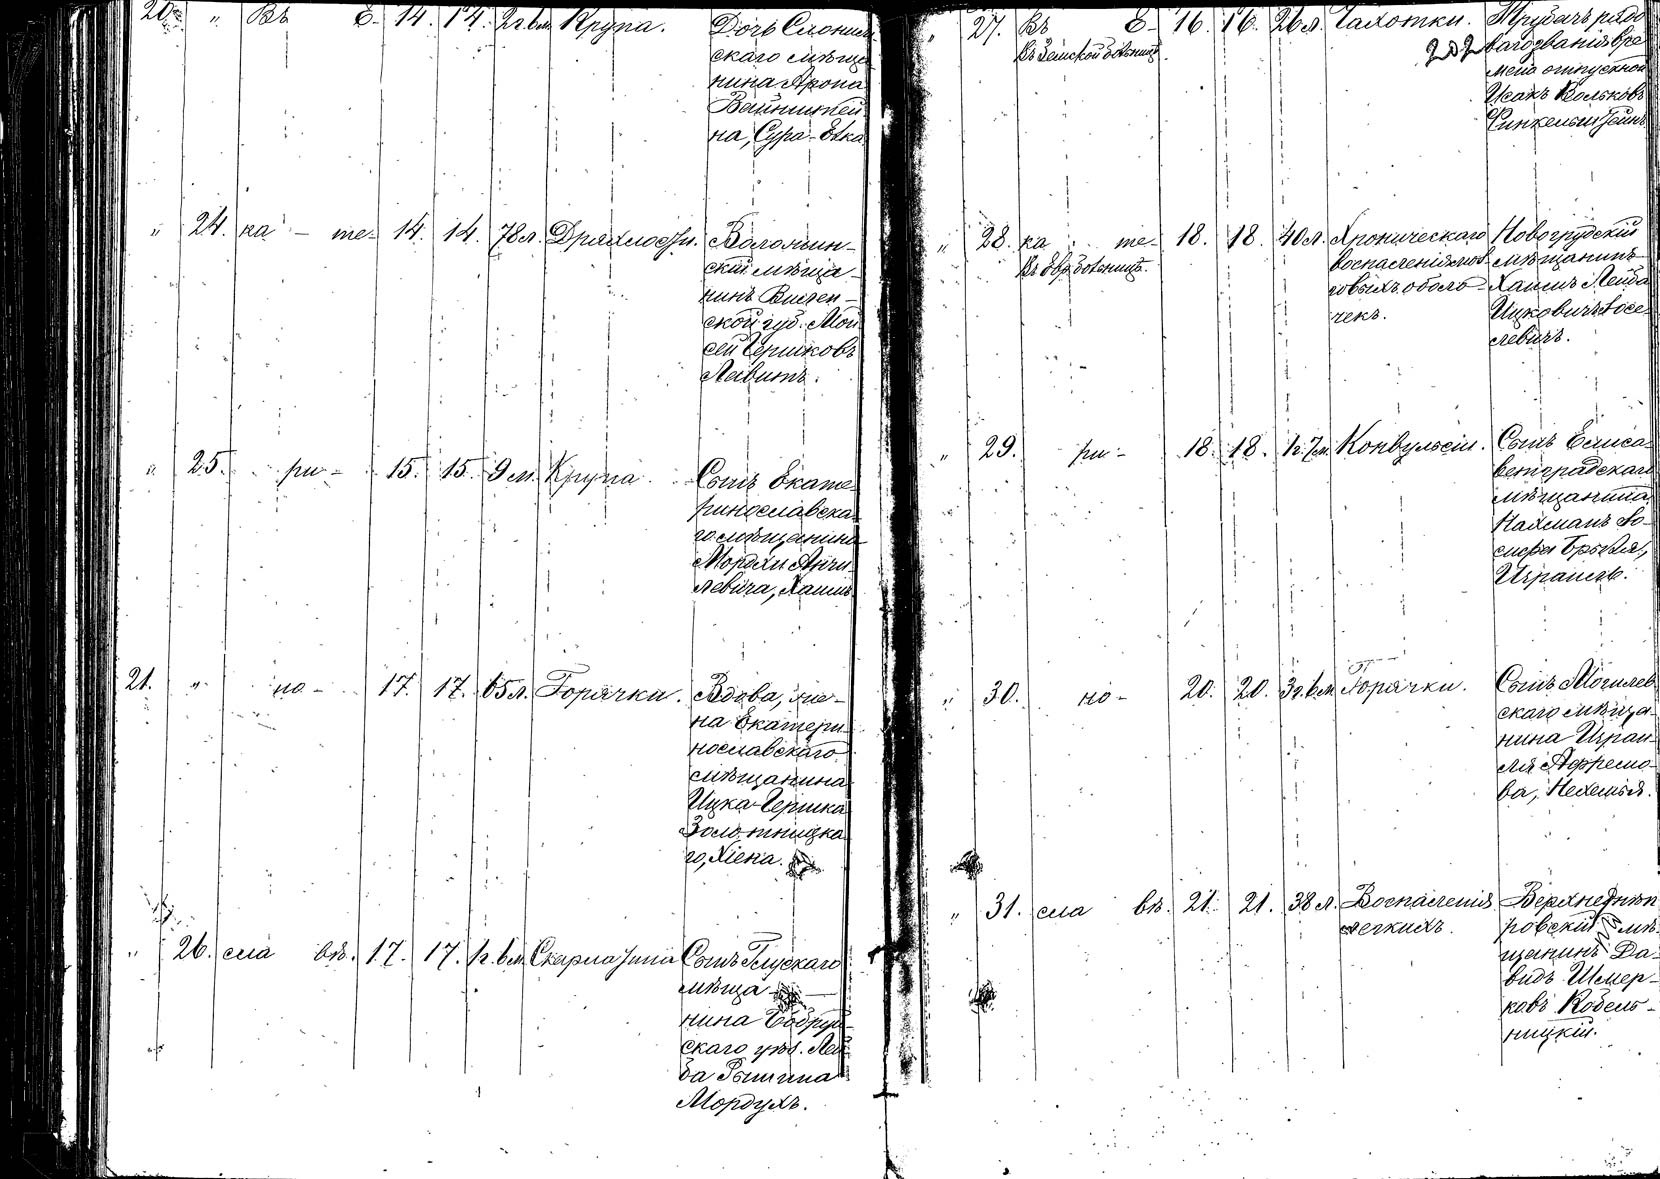 20. " Въ Е- 14. 14. 2г.6м. Крупа. Дочь Слоним-
скаго мѣща-
нина Арона
Вайнштей-
на, Сура-Етка
" 24. ка - те- 14. 14. 78 л. Дряхлости. Воложин-
скій мѣща-
нинъ Вилен-
ской губ. Мой-
сей Гершковъ
Левитъ.
" 25. ри - 15. 15. 9 м. Крупа Сынъ Екате-
ринославска-
го мѣщанина
Мордхи
левича, Хаимъ
21. " но - 17. 17. 65 л. Горячки. Вдова, же-
на Екатери-
нославскаго
мѣщанина
Ицка-Гершка
Золотницка-
го, Хіена.
" 26. сла вѣ. 17. 17. 1г. 6 м. Скарлатина Сынъ Глускаго
мѣща-
нина Бобруй-
скаго уѣз. Лей-
ба
Мордухъ.
" 27. Въ Е- 16. 16. 26 л. Чахотки. Трубачъ рядо-
Въ Земской больницѣ. 202 ваго званія вре-
мено отпускной
Исакъ Вольковъ
Финкельштейнъ
" 28. ка те- 18. 18. 40 л. Хроническаго Новогрудскій
Въ Евр. больницѣ. воспаленія моз- мѣщанинъ
говыхъ оболо- Хаимъ Лейба
чекъ. Ицковичъ Іосе-
левичъ.
" 29. ри - 18. 18. 1г. 7м. Конвульсіи. Сынъ Елиса-
ветградскаго
мѣщанина
Нахмана Іо-
сифа
Израиль.
" 30. но - 20. 20. 3г. 6 м. Горячки. Сынъ Могилев-
скаго мѣща-
нина Израи-
ля Афремо-
ва, Нехемья.
" 31. сла вѣ. 21. 21. 38 л. Воспаленія Верхнеднѣп-
легкихъ. ровскій мѣ-
щанинъ Да-
видъ Шмер-
ковъ Кобель-
ницкій.